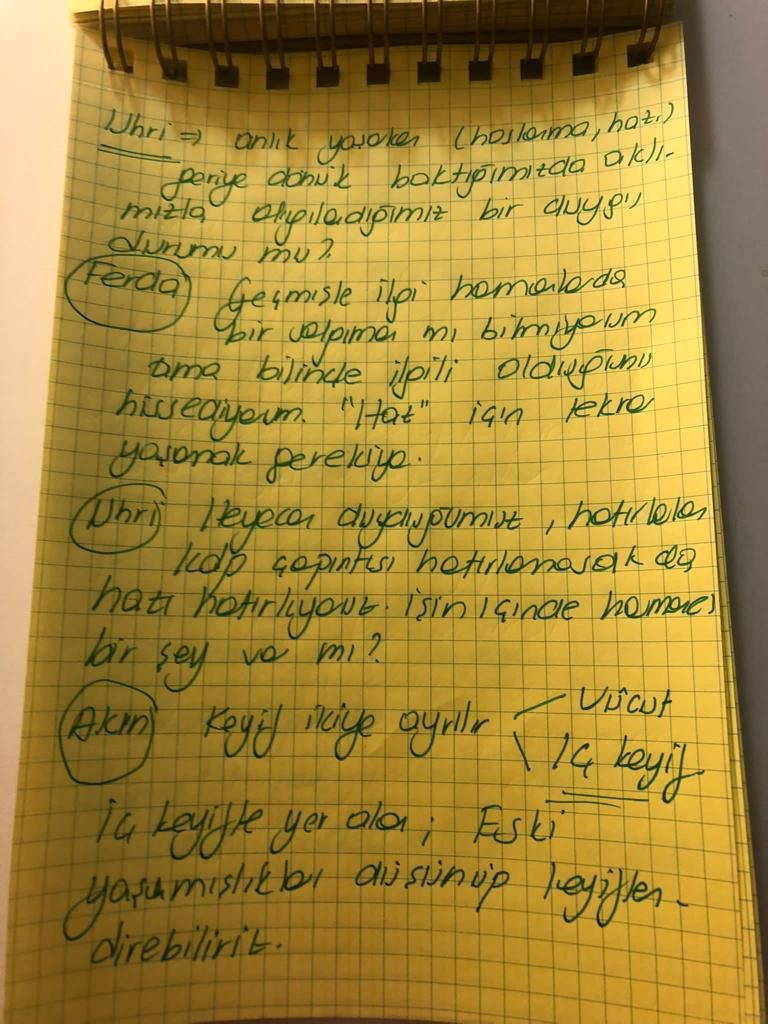 Uhri ⇒ anlık yaşarken (hoşlanma, hazı)
geriye dönük baktığımızda aklı-
mızla algıladığımız bir duygu
durumu mu?
Ferda Geçmişle ilgi
bir mı bilmiyorum
ama bilinçle ilgili olduğunu
hissediyorum. "Haz" için tekrar
yaşamak gerekiyor.
Uhri Heyecan duyduğumuz, hatırlanan
kalp çarpıntısı hatırlanarak da
hazı hatırlıyoruz. işin içinde
bir şey var mı?
Akın Keyif ikiye ayrılır Vücut
İç keyif
İç keyifte yer alan; Eski
yaşanmışlıkları düşünüp keyiflen-
direbiliriz.